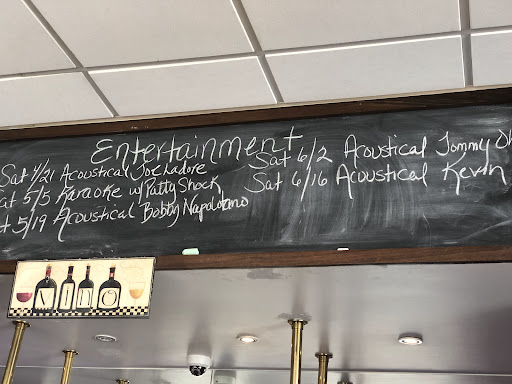 Entertainment
Sat 4/21 Acoustical Joe Ladore
Sat 5/5 Karaoke w/ Patty Shock
5/19 Acoustical Bobby Napolitano
Sat 6/2 Acoustical Tommy
Sat 6/16 Acoustical Kevin
VINO